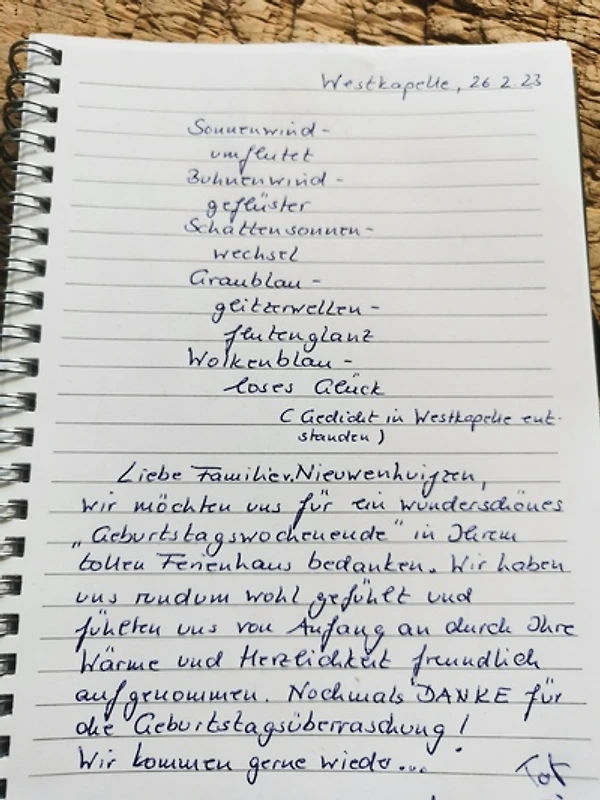 Westkapelle, 26.2.23
Sonnenwind-
umflutet
Buhnenwind-
geflüster
Schattensonnen-
wechsel
Graublau-
glitzerwellen-
flutenglanz
Wolkenblau-
loses Glück
(Gedicht in Westkapelle ent-
standen)
Liebe Familie v. Nieuwenhuijzen,
wir möchten uns für ein wunderschönes
„Geburtstagswochenende" in Ihrem
tollen Ferienhaus bedanken. Wir haben
uns rundum wohl gefühlt und
fühlten uns von Anfang an durch Ihre
Wärme und Herzlichkeit freundlich
aufgenommen. Nochmals DANKE für
die Geburtstagsüberraschung!
Wir kommen gerne wieder...
Tot